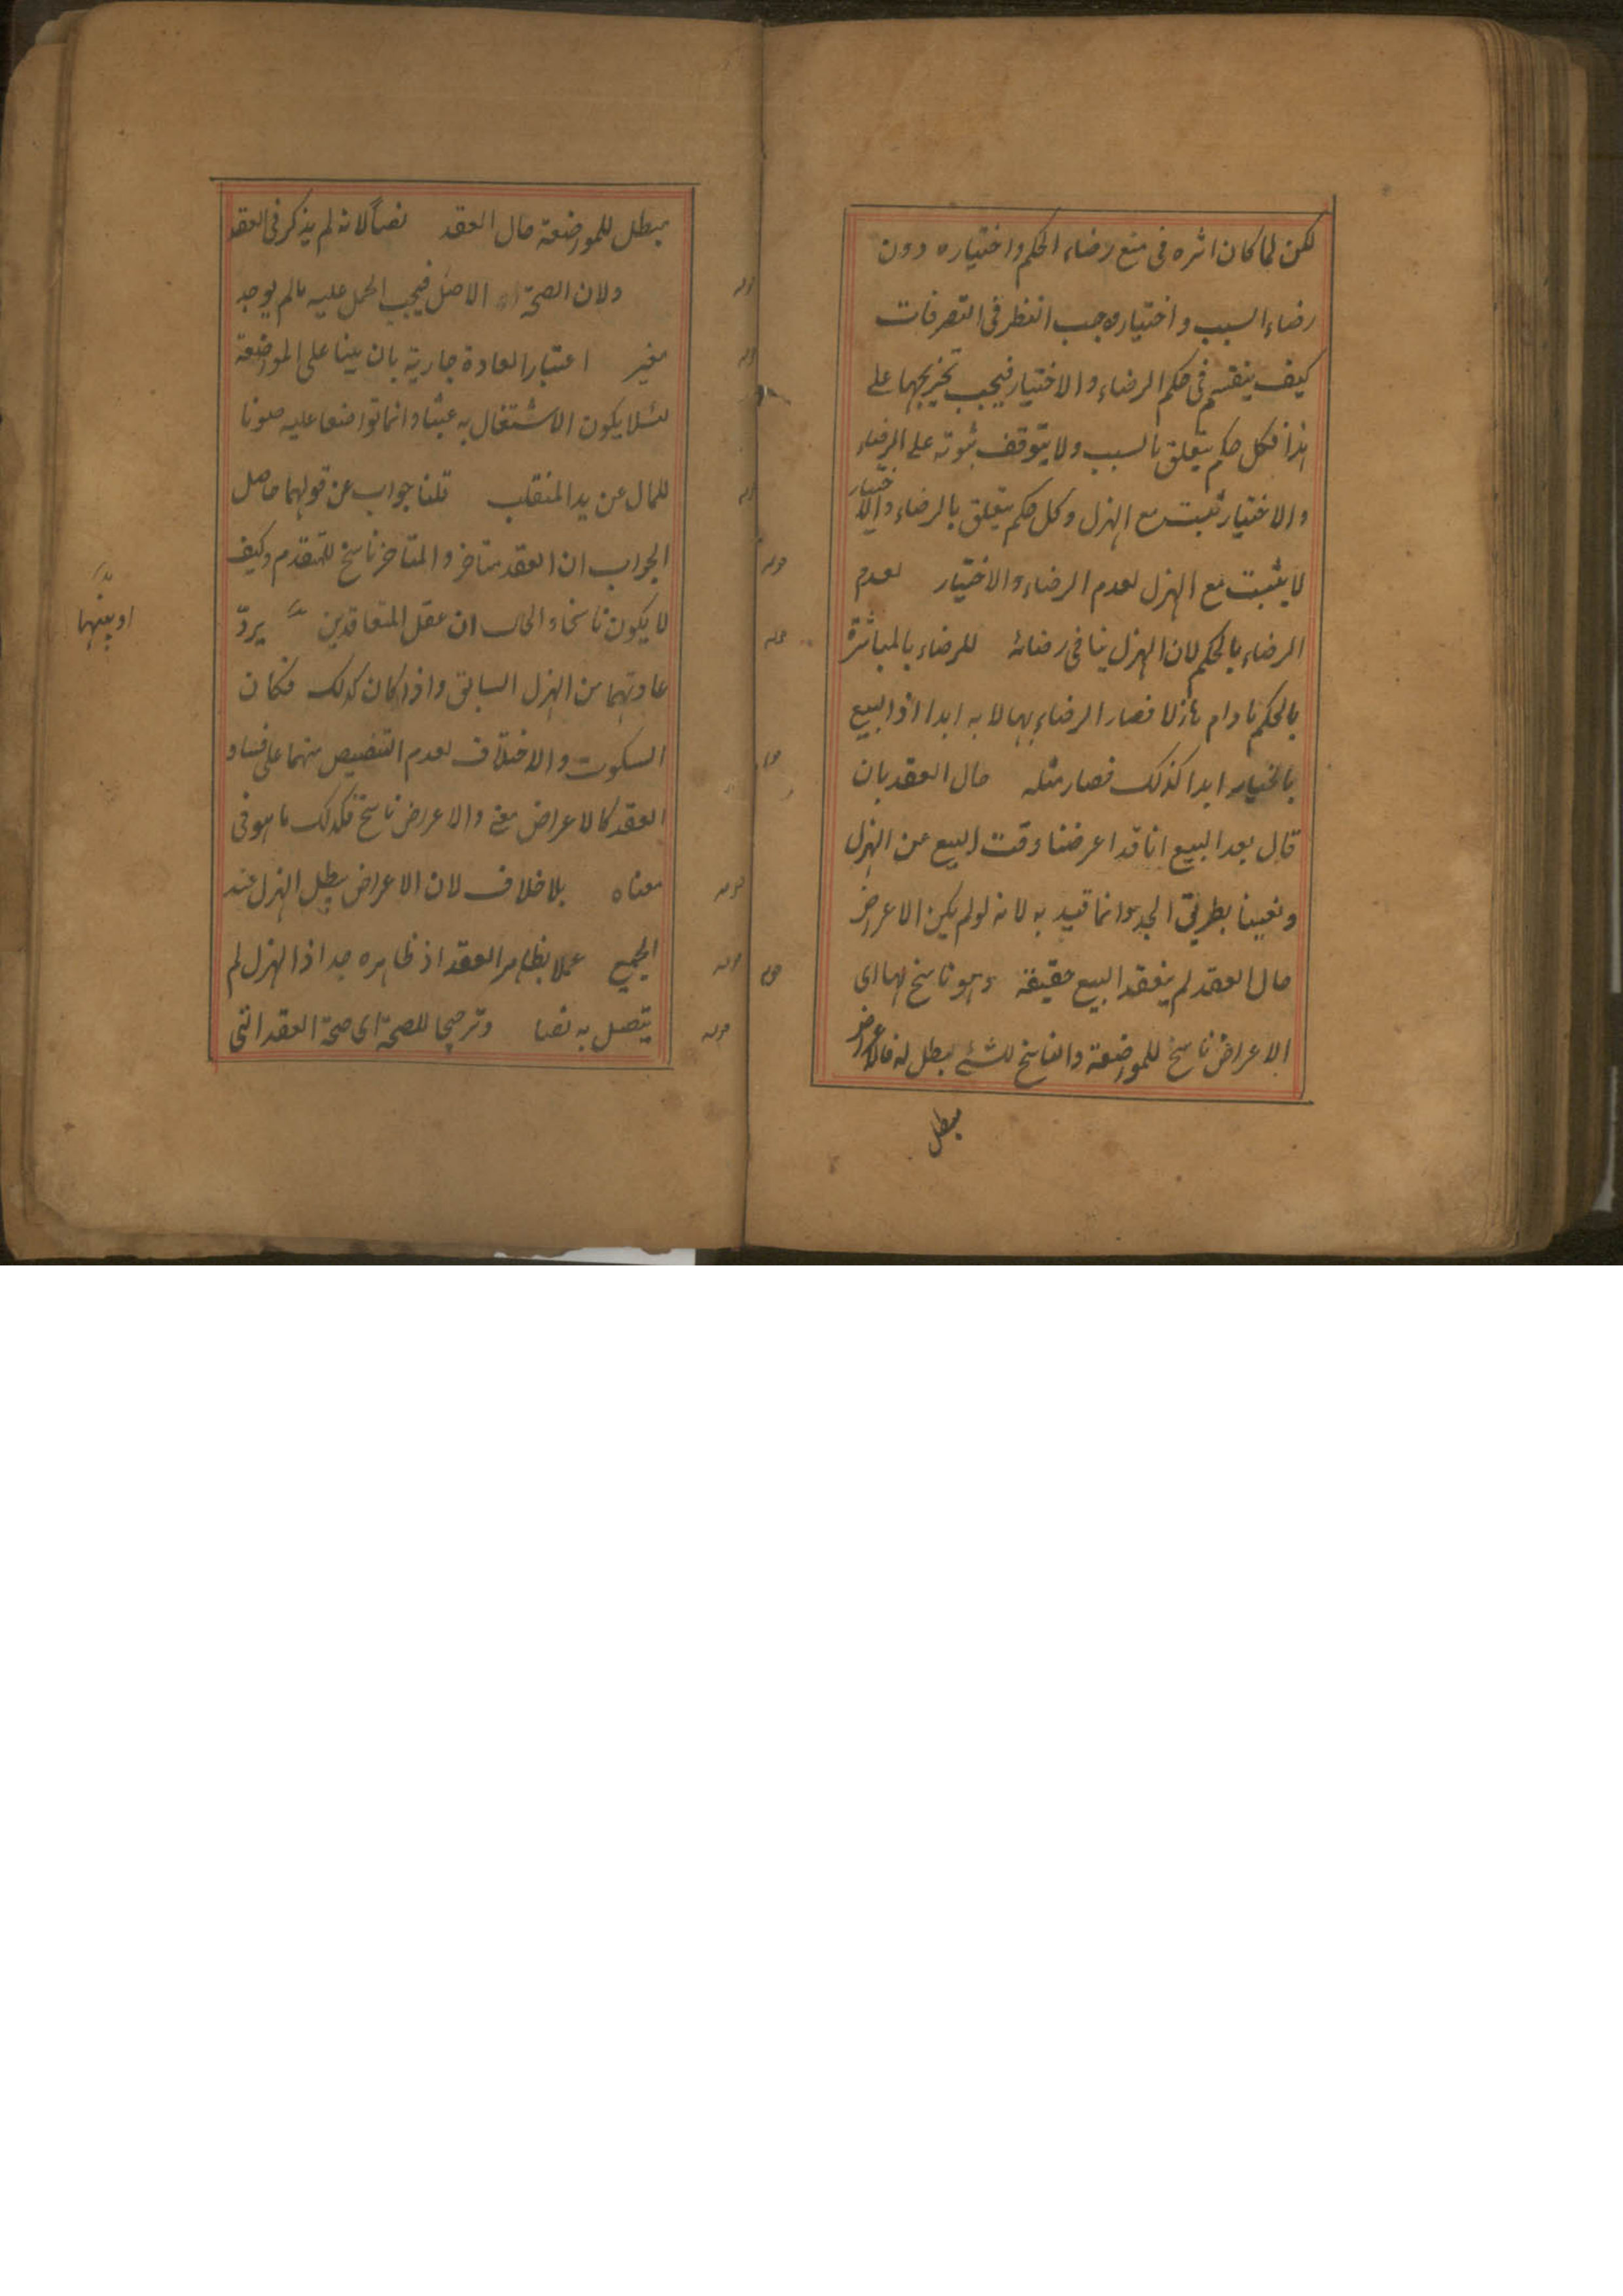 لكن لما كان اثره فى منع رضاء الحكم واختياره دون
رضاء السبب واختياره وجب النظر فى التصرفات
كيف ينقسم فى حكم الرضاء والاختيار فيجب تخريجها على
هذا فكل حكم يتعلق بالسبب ولا يتوقف ثبوته على الرضاء
والاختيار ثبت مع الهزل وكل حكم يتعلق بالرضاء والاختيار
لا يثبت مع الهزل لعدم الرضاء والاختيار لعدم
الرضاء بالحكم لان الهزل ينافى رضائه للرضاء بالمباشرة
بالحكم مادام هازلا فصار الرضاء بها لا به ابدا اذ البيع
بالخيار ابدا كذلك فصار مثله حال العقد بان
قال بعد البيع انا قد اعرضنا وقت البيع عن الهزل
وتعينا بطريق الجد وانما قيد به لانه لو لم يكن الاعراض
حال العقد لم ينعقد البيع حقيقة وهو ناسخ لها اى
الاعراض ناسخ للمواضعة والناسخ للشئ مبطل له فالاعراض
مبطل
مبطل للمواضعة حال العقد نصاً لانه لم يذكر فى العقد
ولان الصحة الاصل فيجب الحمل عليه مالم يوجد
مغير اعتبار العادة جارية بان يبنا على المواضعة
لئلا يكون الاشتغال به عبثا وانما تواضعا عليه صونا
للمال عن يد المتغلب قلنا جواب عن قولهما حاصل
الجواب ان العقد متاخر والمتاخر ناسخ للمتقدم وكيف
لا يكون ناسخا والحال ان عقل المتعاقدين يردّ
او دينهما
عادتهما من الهزل السابق واذا كان كذلك فكان
السكوت والاختلاف لعدم التنصيص منهما على فساد
العقد كالاعراض معنى والاعراض ناسخ فكذلك ما هو فى
معناه بلا خلاف لان الاعراض يبطل الهزل عند
الجميع عملا بظاهر العقد اذ ظاهره جد اذ الهزل لم
يتصل به نصا وترجيحا للصحة اى صحة العقد التى
قوله
قوله
قوله
قوله
قوله